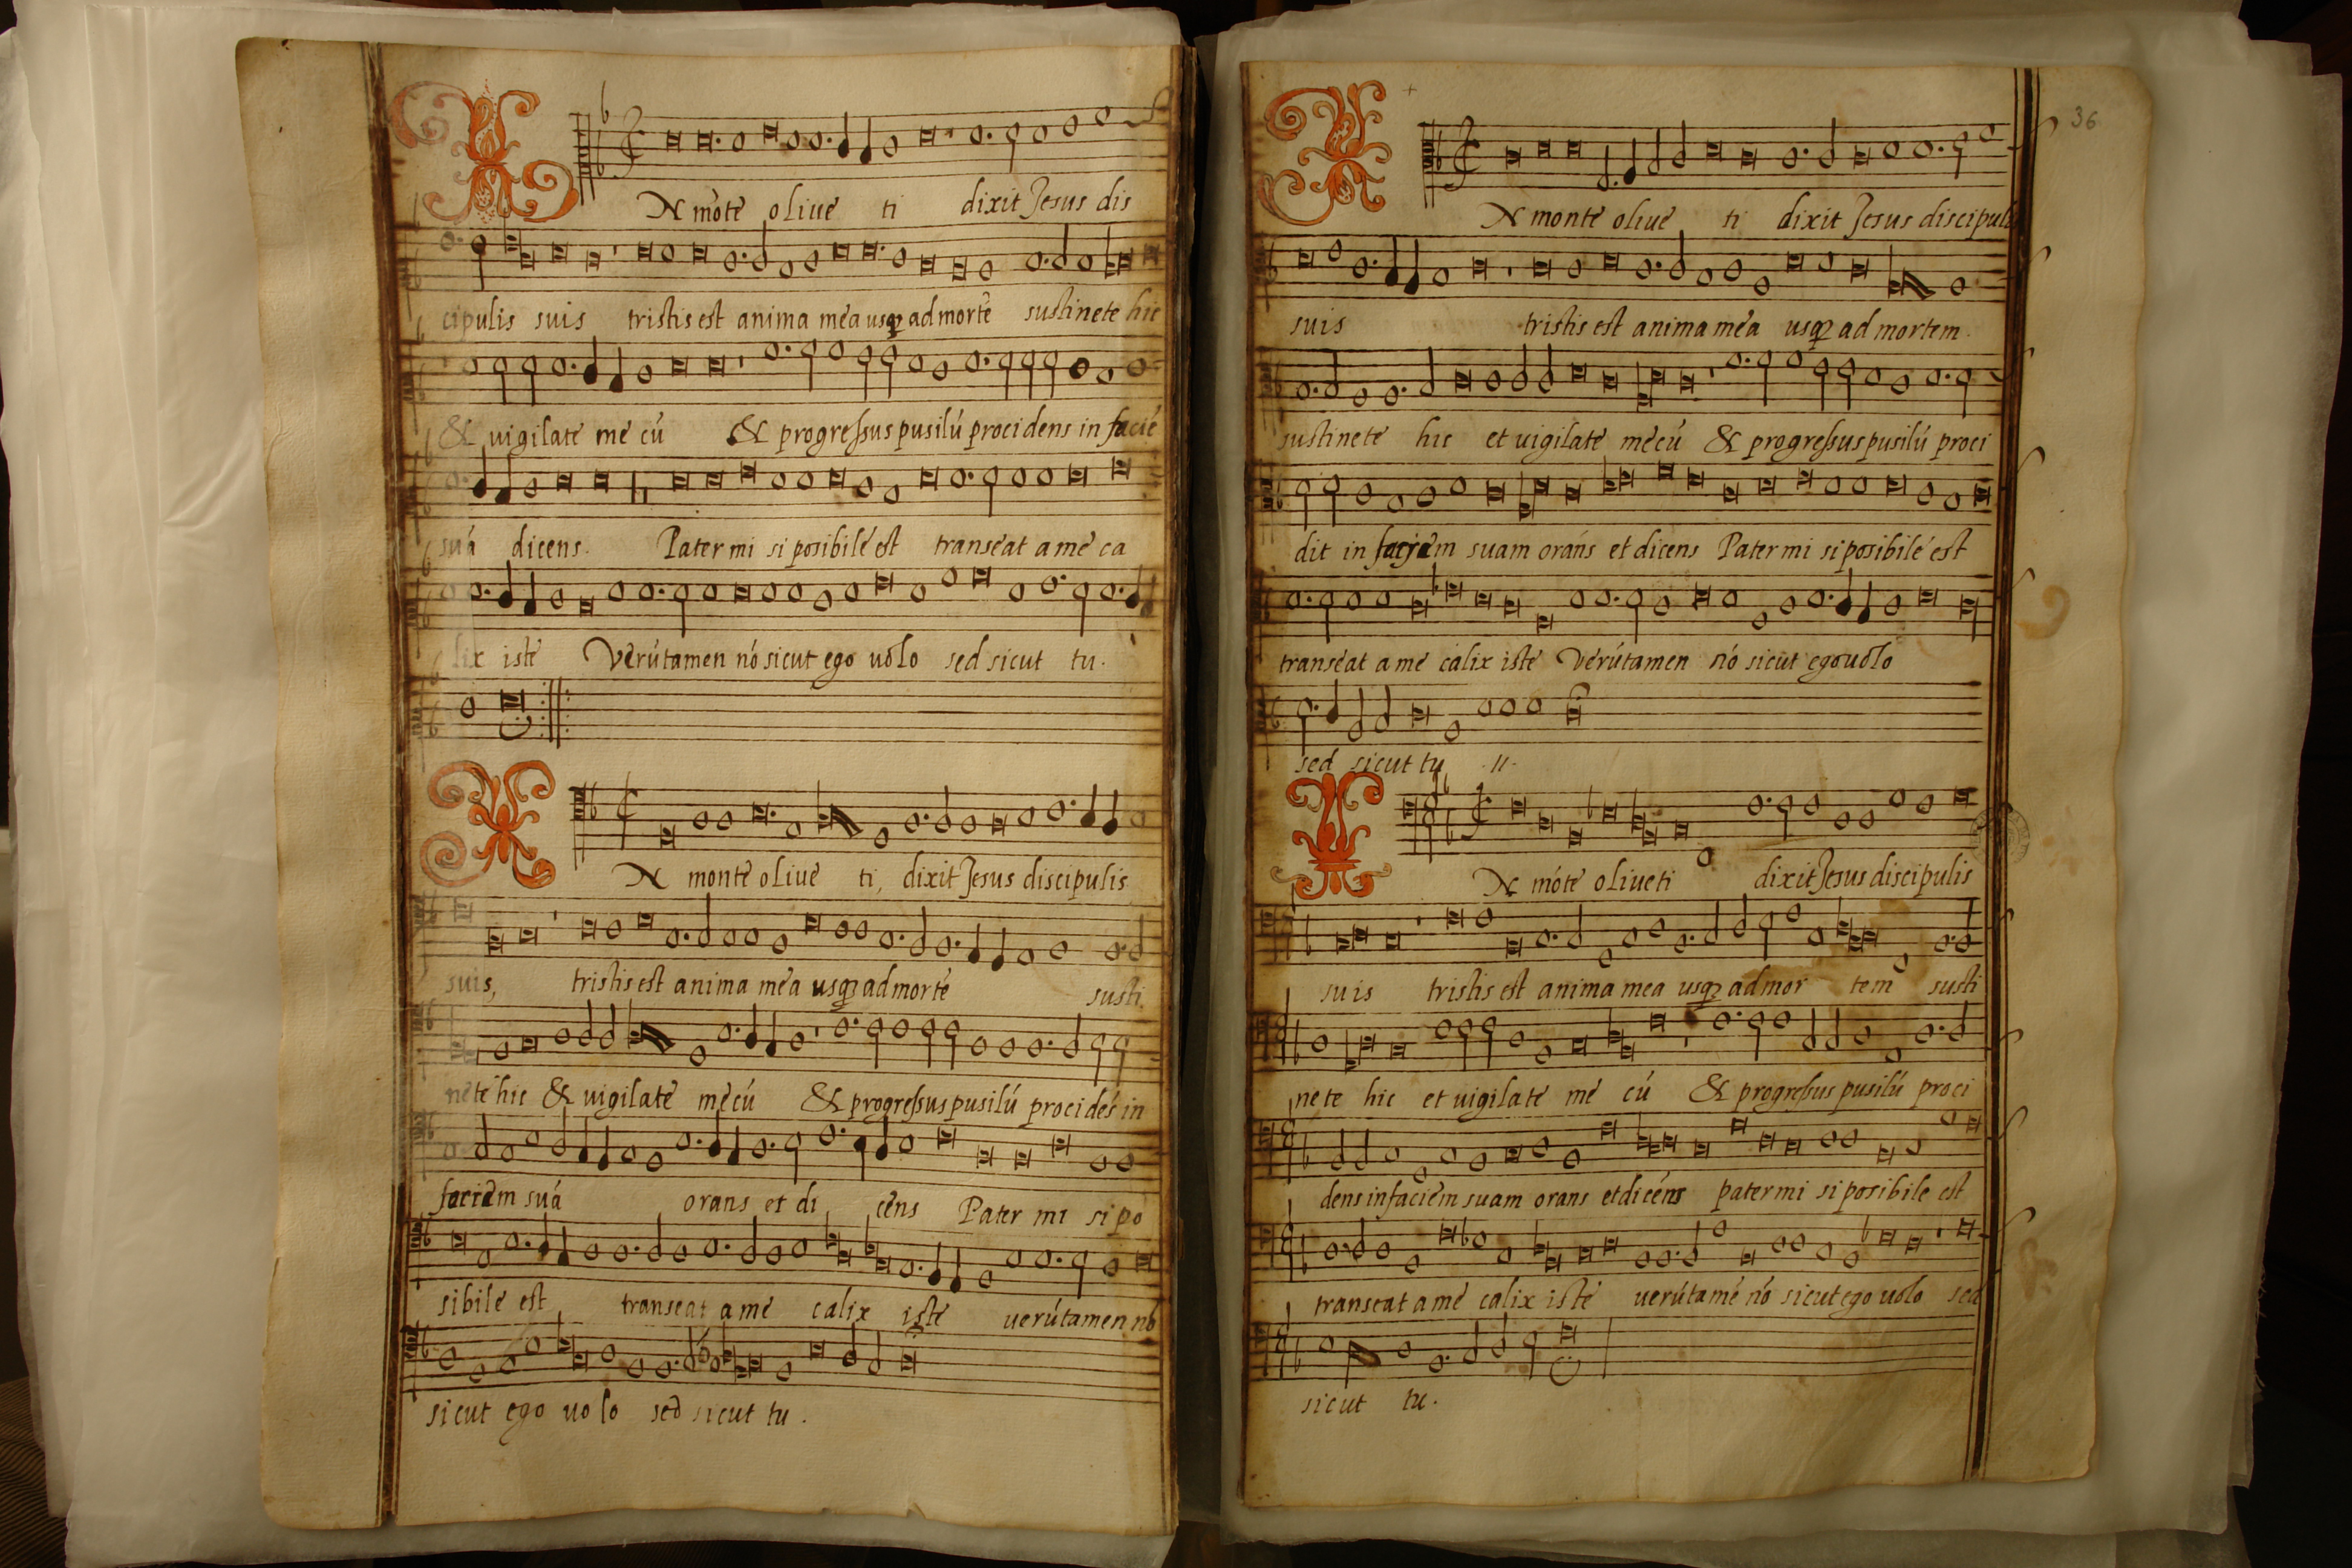 IN mōte oliue ti dixit Jesus dis
cipulis suis tristis est anima mea usqȝ ad mortē sustinete hic
& uigilate me cū & progressus pusilū procidens in facié
suá dicens. Pater mi si posibile est transeat a me ca
lix iste Verútamen nó sicut ego uolo sed sicut tu.
IN monte oliue ti, dixit Jesus discipulis
suis, tristis est anima mea usqȝ ad morté susti
nete hic & uigilate mecú & progressus pusilú procidés in
faciem suá orans et di cens Pater mi si po
sibile est transeat a me calix iste uerútamen nó
sicut ego uolo sed sicut tu.
36
IN monte oliue ti dixit Jesus discipulis
suis tristis est anima mea usqȝ ad mortem.
sustinete hic et uigilate mecú & progressus pusilú proci
dit in faciem suam oráns et dicens Pater mi si posibile est
transeat a me calix iste Verútamen nó sicut ego uolo
sed sicut tu .11.
IN móte oliueti dixit Jesus discipulis
suis tristis est anima mea usqȝ ad mor tem susti
nete hic et uigilate me cú & progressus pusilú proci
dens in faciem suam orans et dicéns pater mi si posibile est
transeat a me calix iste uerútamé nó sicut ego uolo sed
sicut tu.